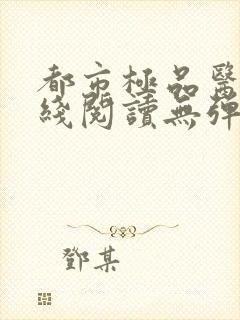 都市極品醫
綫閱讀無彈
鄧某